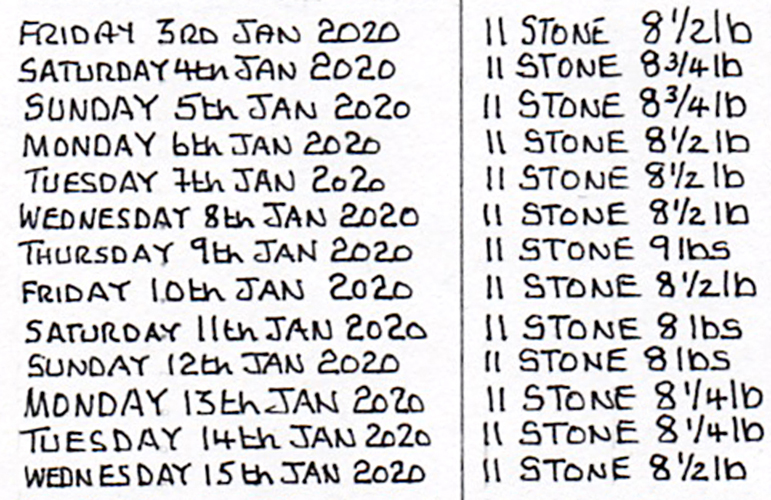 FRIDAY 3RD JAN 2020 11 STONE 8 1/2lb
SATURDAY 4th JAN 2020 11 STONE 8 3/4lb
SUNDAY 5th JAN 2020 11 STONE 8 3/4lb
MONDAY 6th JAN 2020 11 STONE 8 1/2 lb
TUESDAY 7th JAN 2020 11 STONE 8 1/2 lb
WEDNESDAY 8th JAN 2020 11 STONE 8 1/2 lb
THURSDAY 9th JAN 2020 11 STONE 9 lbs
FRIDAY 10th JAN 2020 11 STONE 8 1/2lb
SATURDAY 11th JAN 2020 11 STONE 8 lbs
SUNDAY 12th JAN 2020 11 STONE 8 lbs
MONDAY 13th JAN 2020 11 STONE 8 1/4lb
TUESDAY 14th JAN 2020 11 STONE 8 1/4lb
WEDNESDAY 15th JAN 2020 11 STONE 8 1/2lb